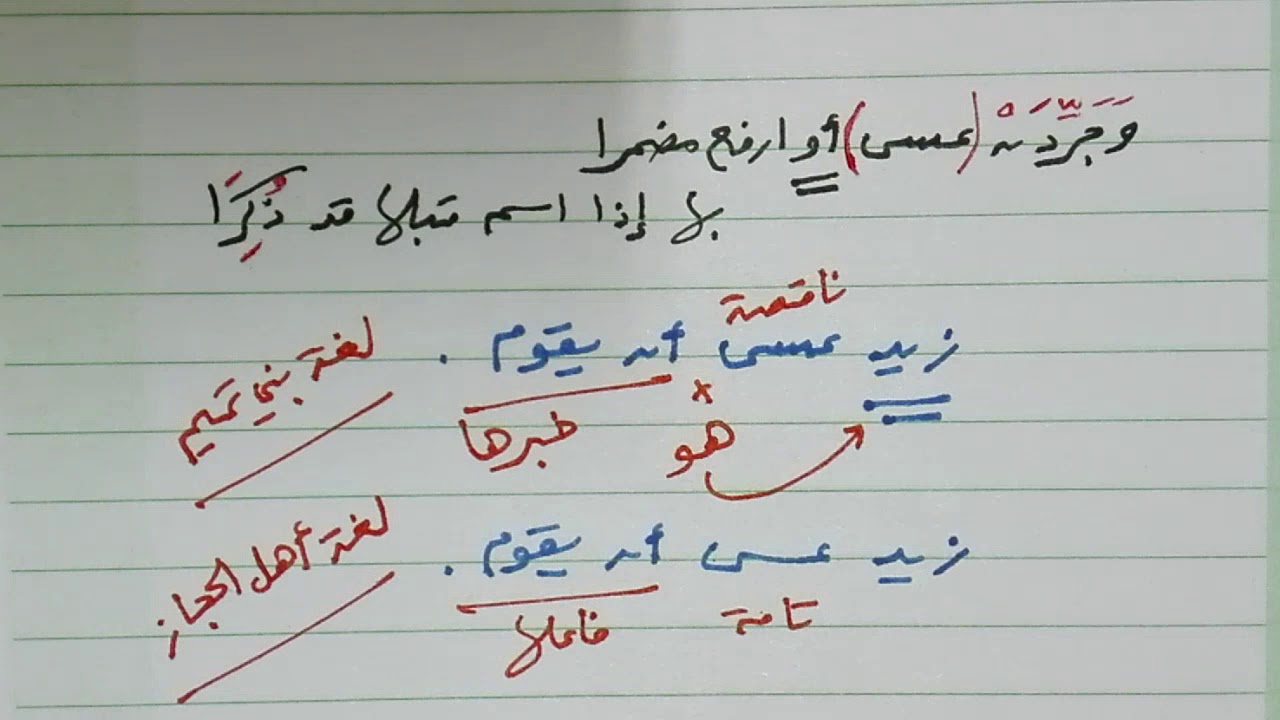 وَجَرِّدَنْ (عسى) أو ارفع مضمرا
بها إذا اسم قبلها قد ذُكِرَا
ناقصة
زيد عسى أن يقوم .
لغة بني تميم
هو
خبرها
زيد عسى أن يقوم .
لغة أهل الحجاز
تامة
فاعلها